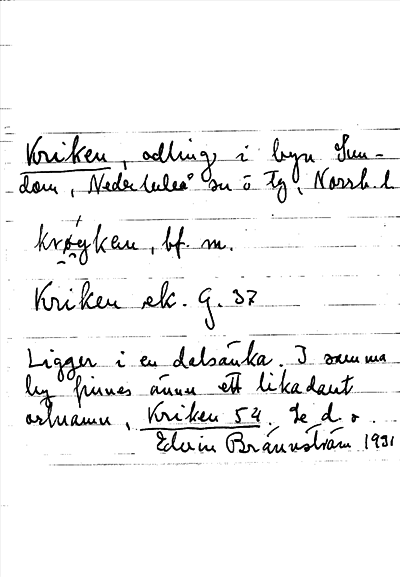 Kriken, odling i byn Sun-
dom, Nederluleå sn o tg, Norrb. l
krøyken, bf. m.
Kriken ek. G. 37
Ligger i en dalsänka. I samma
by finnes ännu ett likadant
ortnamn, Kriken 54. Se d. o.
Edvin Brännström 1931